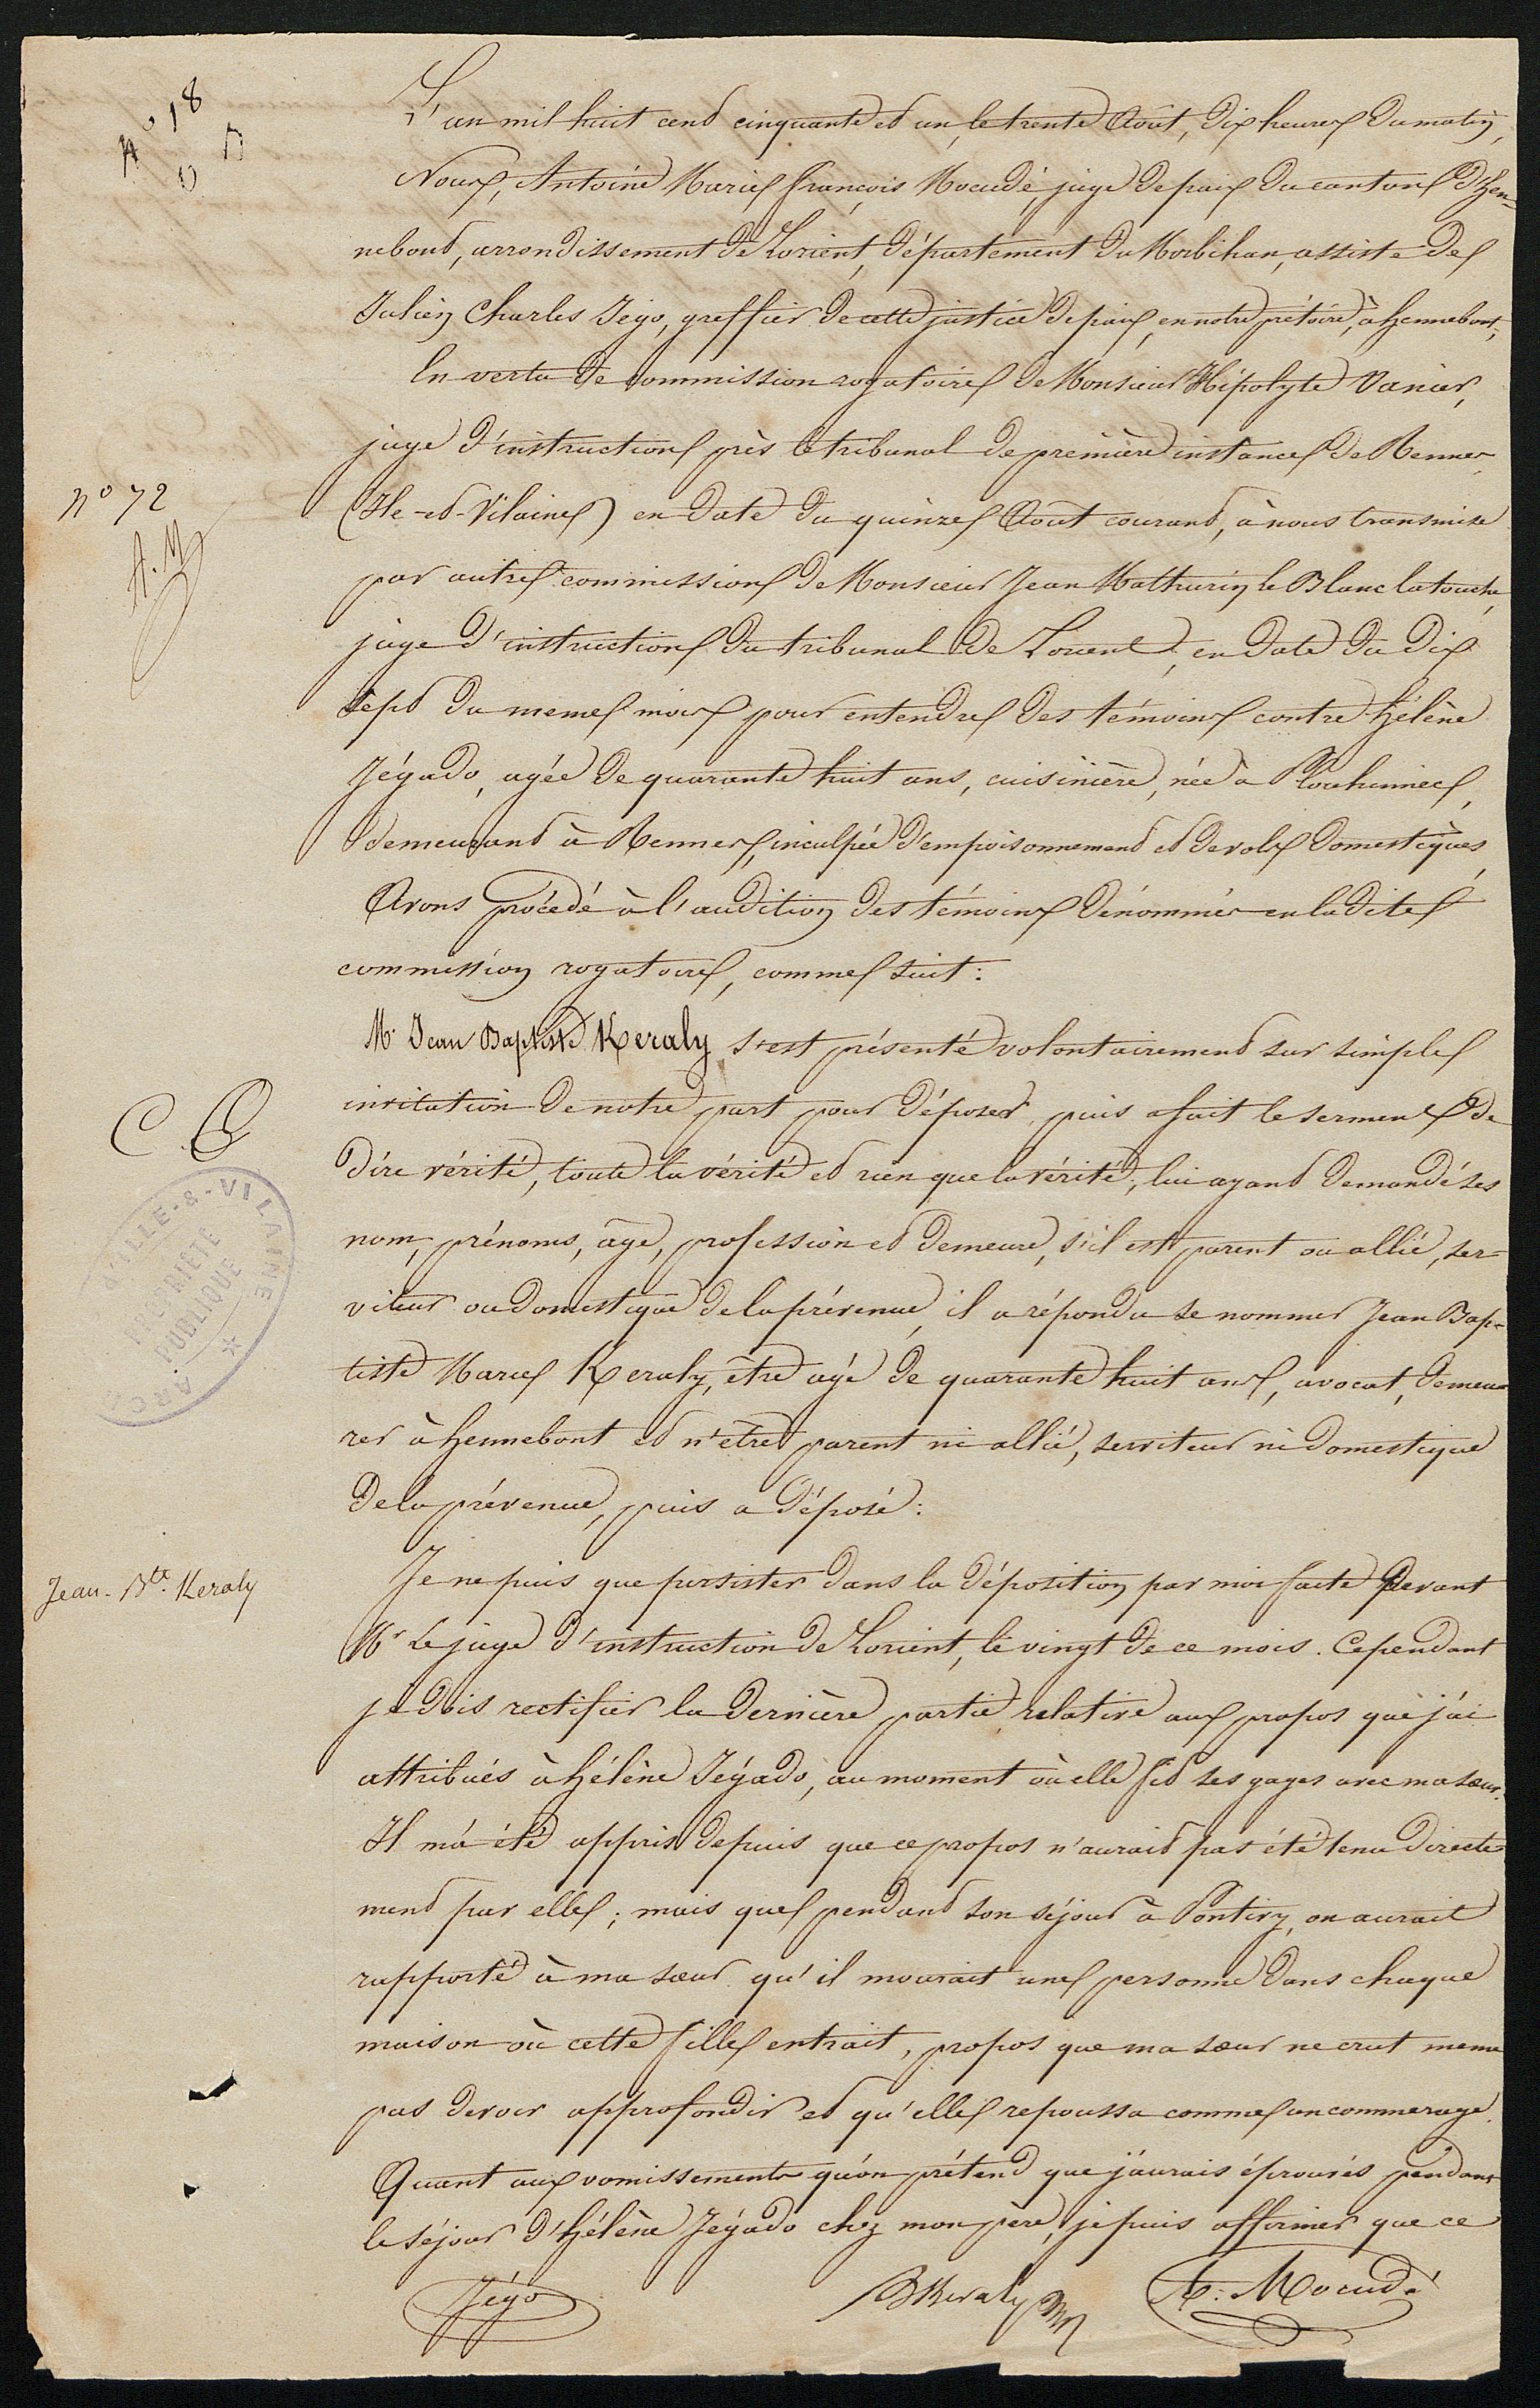 N° 18
D
L'an mil huit cent cinquante et un, le trente Août, dix heures du matin,
Nous, Antoine Marie françois Mocudé, juge de paix du canton d'Hen=
nebont, arrondissement de Lorient, département du Morbihan, assisté de
Julien Charles Jégo, greffier de cette justice de paix, en notre prétoire, à hennebont,
En vertu de commission rogatoire de Monsieur Hipolyte Vanier,
juge d'instruction près le tribunal de première instance de Rennes
n° 72
(Ile-et-Vilaine) en date du quinze Août courant, à nous transmise
A. M
par autre commission de Monsieur Jean Mathurin le Blanc latouche,
juge d'instruction du tribunal de Lorient, en date du dix
sept du meme mois pour entendre des témoins contre hélène
Jégado, agée de quarante huit ans, cuisinière, née à Plouhinnec,
demeurant à Rennes, inculpée d'empoisonnement et de vols domestiques,
Avons procédé à l'audition des témoins dénommés en la dite
commission rogatoire, comme suit :
Mr Jean Baptiste Keraly s'est présenté volontairement sur simple
invitation de notre part pour déposer, puis a fait le serment de
dire vérité, toute la vérité et rien que la vérité; lui ayant demandé ses
nom, prénoms, âge, profession et demeure, s'il est parent ou allié, ser=
viteur ou domestique de la prévenue, il a répondu se nommer Jean Bap=
tiste Marie Keraly, être agé de quarante huit ans, avocat, demeu=
rer à hennebont et n'être parent ni allié, serviteur ni domestique
de la prévenue, puis a déposé :
D'ILLE-&-VILAINE
PROPRIÉTÉ
PUBLIQUE
ARC
Jean-Bte. Keraly
Je ne puis que persister dans la déposition par moi faite devant
Mr le juge d'instruction de Lorient, le vingt de ce mois. Cependant
je dois rectifier la dernière partie relative aux propos que j'ai
attribués à hélène Jégado, au moment où elle fit ses gages avec ma sœur.
Il m'a été appris depuis que ce propos n'aurait pas été tenu directe
ment par elle; mais que pendant son séjour à Pontivy, on aurait
rapporté à ma sœur qu'il mourait une personne dans chaque
maison où cette fille entrait, propos que ma sœur ne crut meme
pas devoir approfondir et qu'elle repoussa comme un commerage.
Quant aux vomissements qu'on prétend que j'aurais éprouvés pendant
le séjour d'hélène Jégado chez mon père, je puis affirmer que ce
Jégo BKeraly A. Mocudé